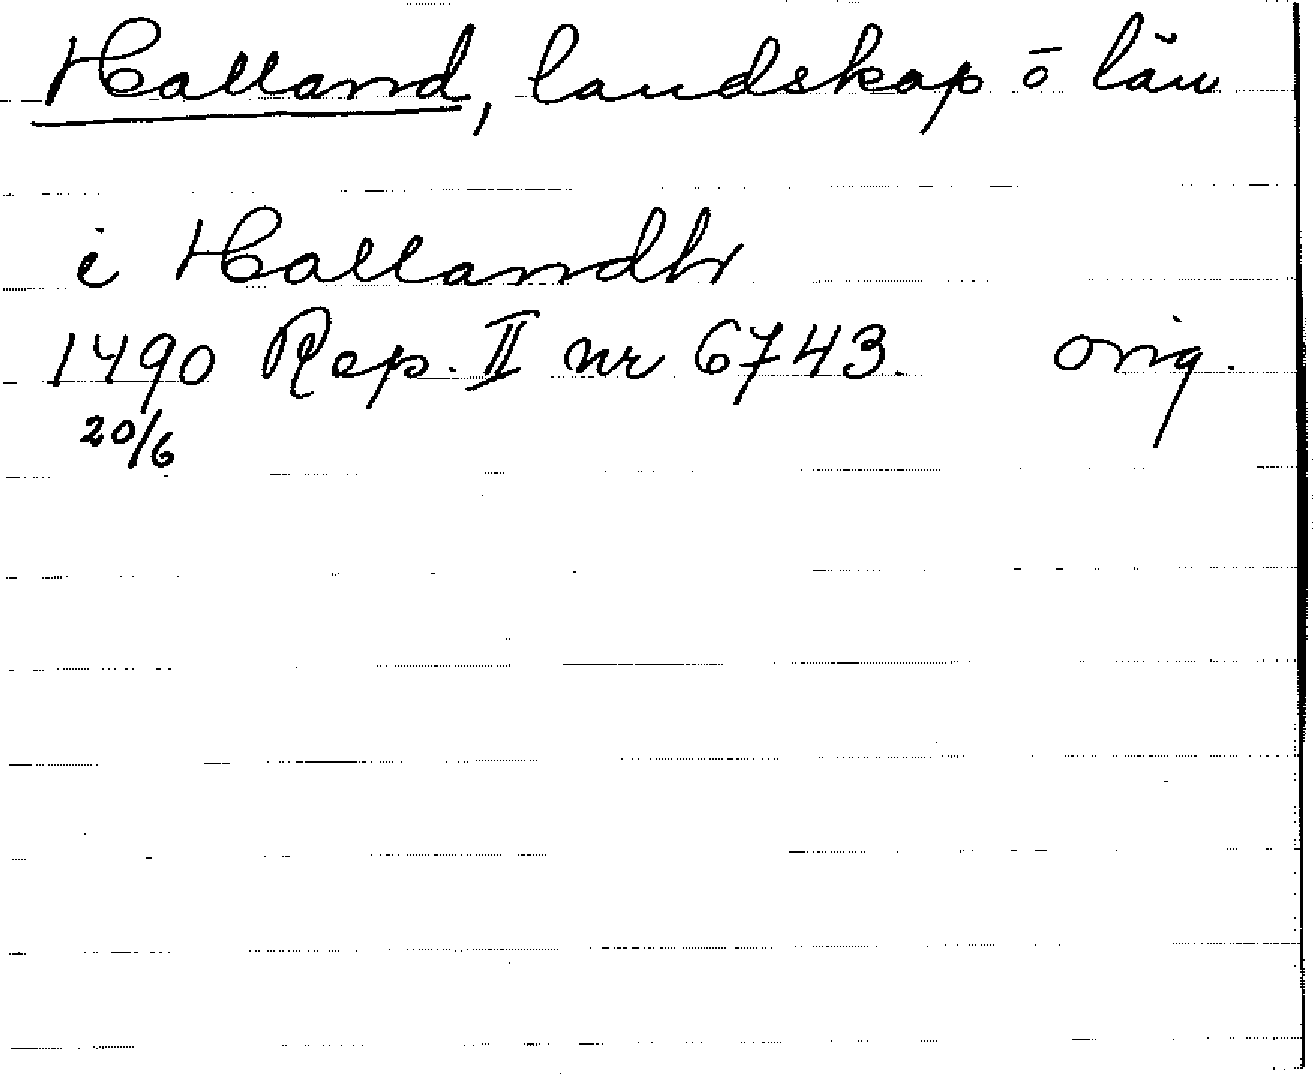 Halland, landskap ō län
i Hallandh
1490 Rep. II nr 6743. orig.
20/6